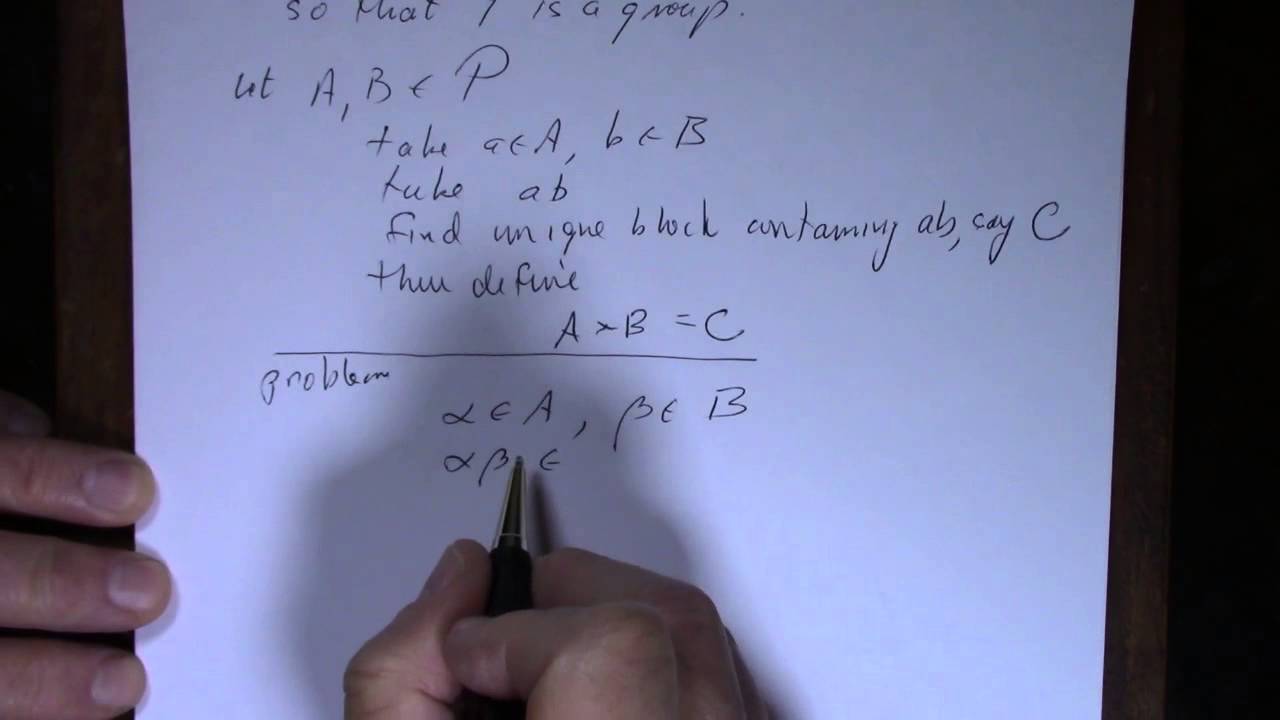 so that P is a group.
Let A, B ∈ P
take a ∈ A, b ∈ B
take ab
find unique block containing ab, say C
then define
A * B = C
problem
α ∈ A, β ∈ B
αβ ∈